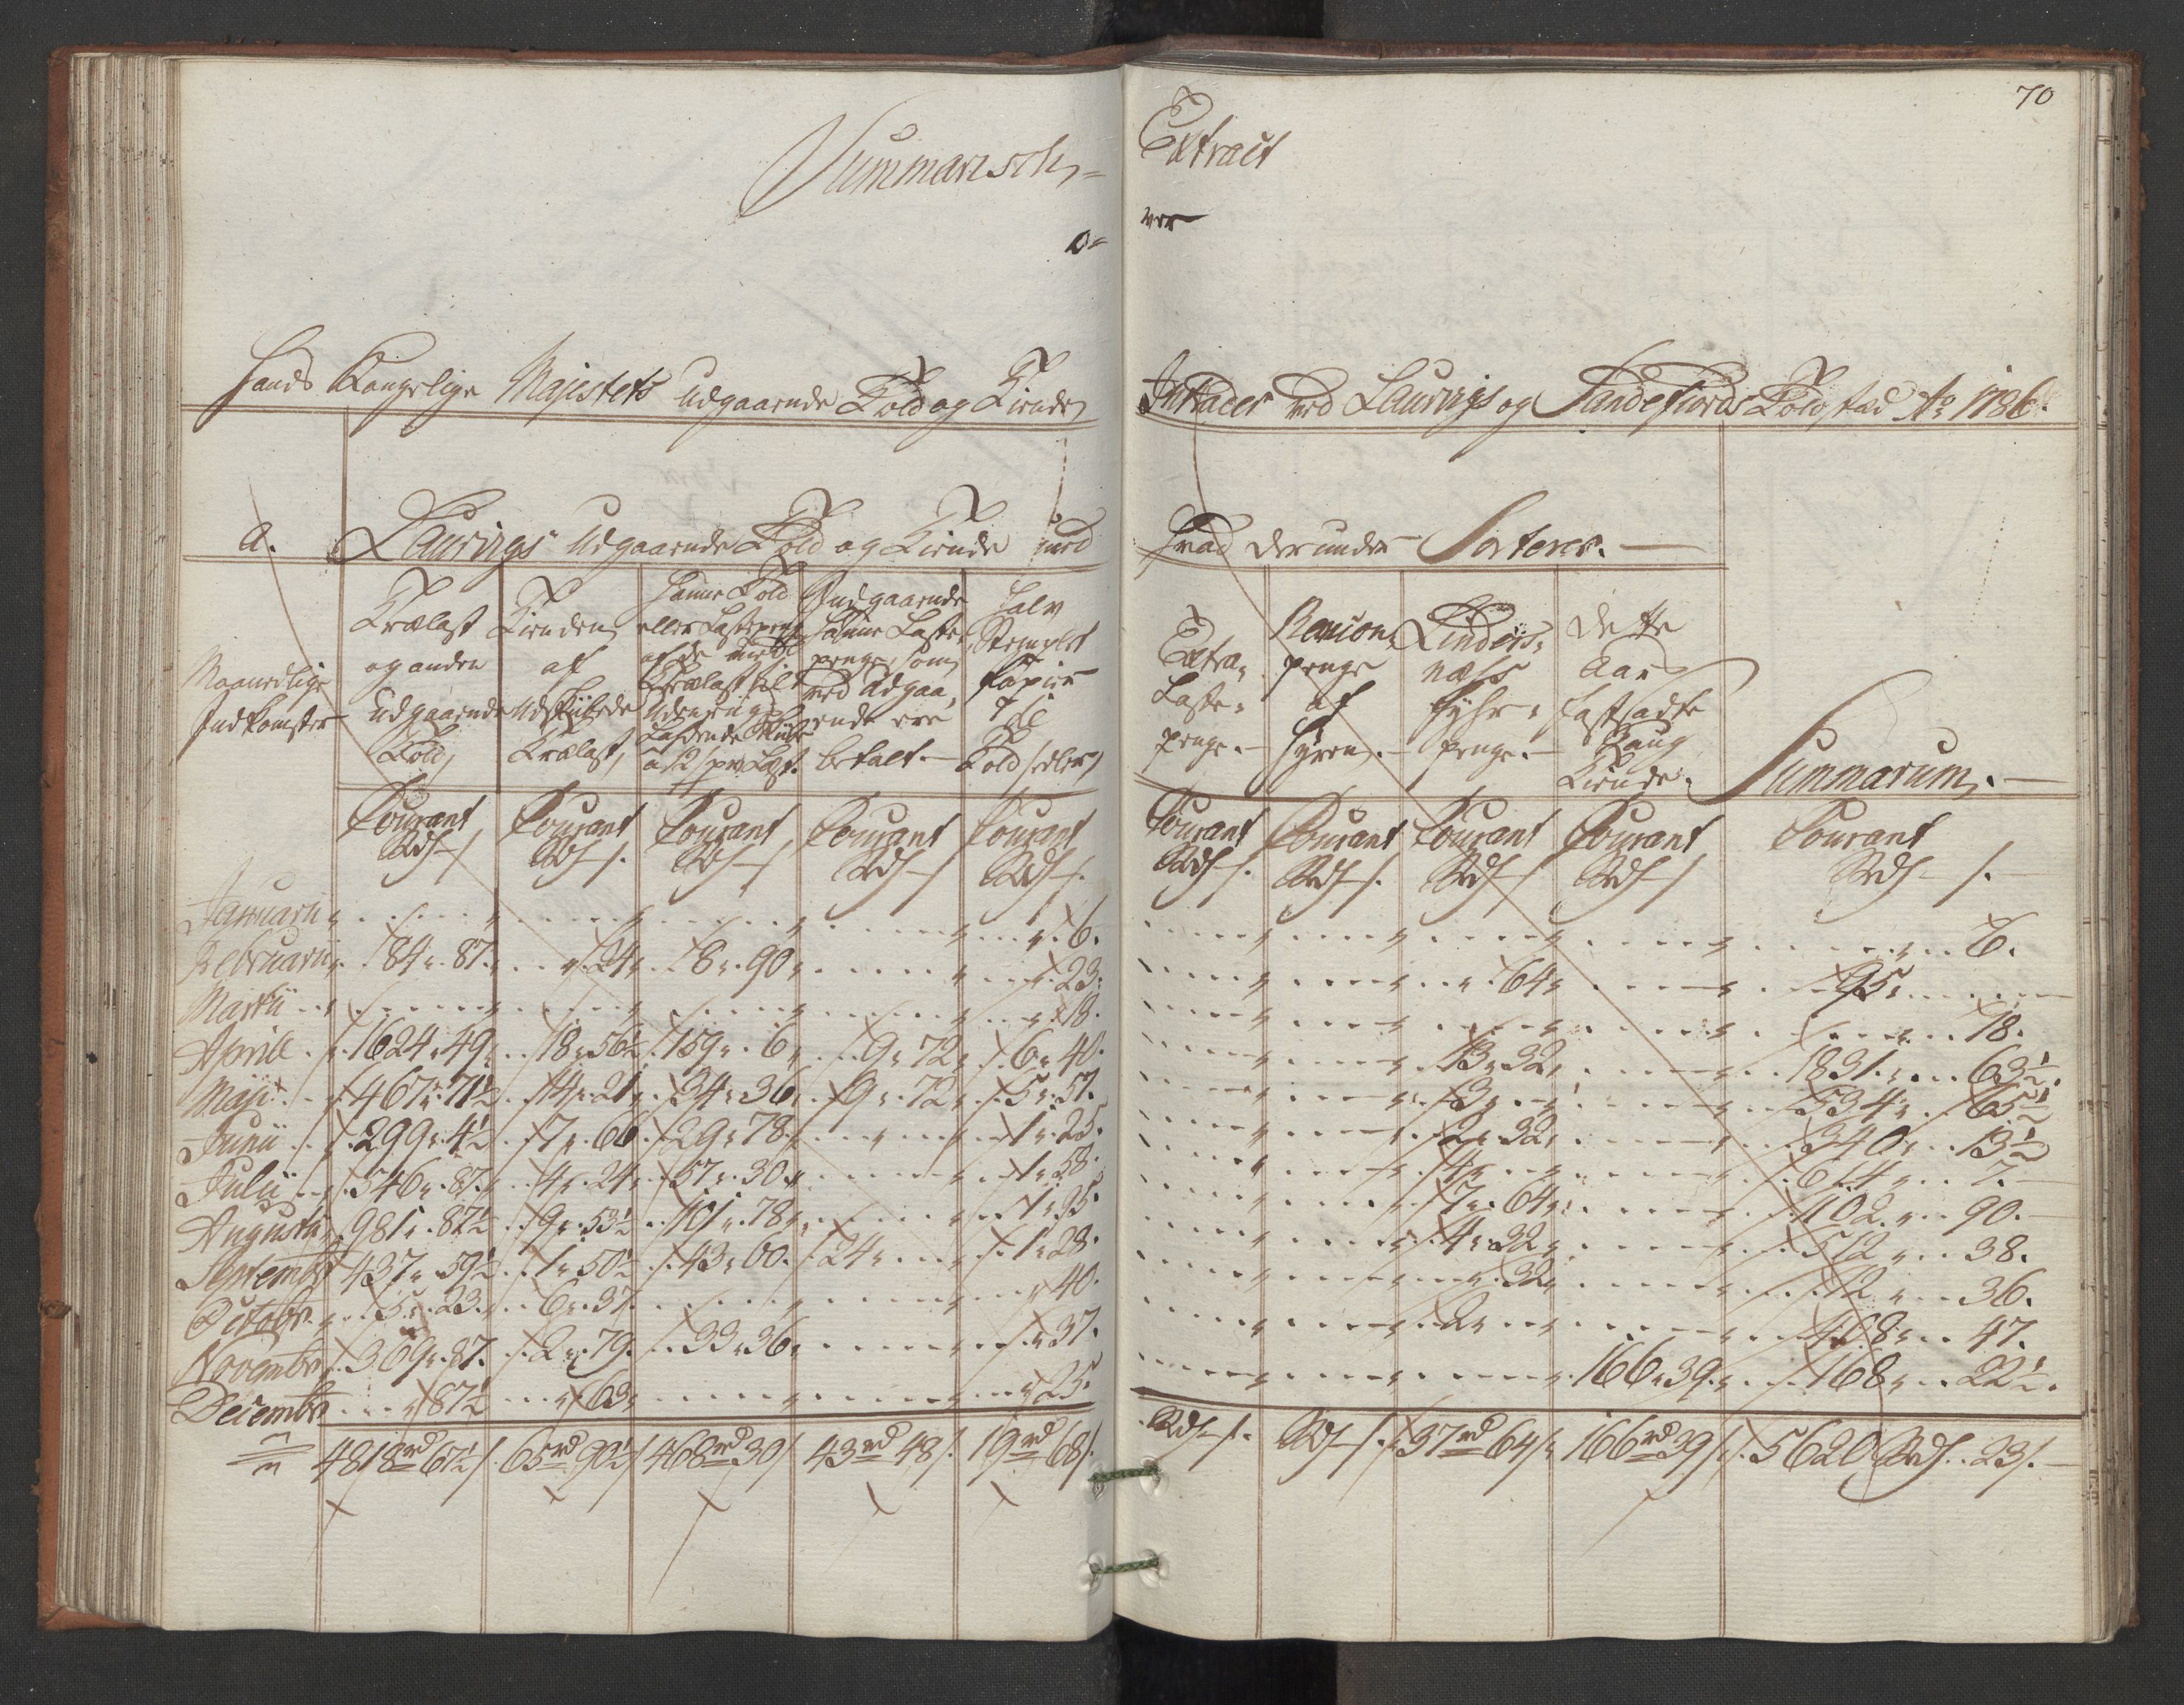 70
Summarisch=
Extract
o=
ver
Hands Kongelige Majestets udgaaende Told og Tiende
Intrader ved Laurvigs og Sandefiords Toldstæd Ao 1786.
a. Laurvigs Udgaaende Told og Tiende med
hvad derunder Sorterer.
Maanedlige
Indkomster
Trælast
og anden
udgaaende
Told,
Tienden
af
Udskibede
Trælast,
Hanne Told
eller Lastepenge
af de med
Trælast til
Udenrigs
Ladende Skibe
a 12 s pr Læst.
Indgaaende
Hanne Laste-
penge, som
ved Udgaa-
ende ere
betalt.
Halv
Stemplet
Papiir
til
Toldsedler,
Extra-
Laste-
penge.
Recion-
penge
af
Hyren.
Linders-
næss
Fyhr-
penge.
Dette
Aar
fastsadte
Baug
Tiende.
Summarum.
Courant Courant Courant Courant Courant
Courant Courant Courant Courant Courant
Rdr s Rdr s. Rdr s Rdr s Rdr s.
Rdr s. Rdr s. Rdr s Rdr s Rdr s.
Januarii 6. 6.
Februarii 84 87. 24 8 90 23. 64 95
Martii 18. 18.
April 1624 49 18 56½ 159 6 9 72 6 40. 13 32 1831 63½.
Maji 467 71½ 14 21 34 36 9 72 5 57. 3 534 65½
Junii 299 4½ 7 66 29 78 1 25. 2 32 340 13½
Julii 546 87. 4 24 57 30 1 58. 4 614 7.
Augusti 981 87½ 9 53½ 101 78 1 95. 7 64 1102 90.
Septembr 437 59½ 1 50½ 43 60. 24 1 28. 4 32 512 38.
Octobr. 5 23. 6 37. 40. 32 12 36.
Novembr 369 87. 2 79. 33 36 37. 2 408 47.
Decembr 87½ 63 25. 166 39. 168 22½.
4818 rd 67½ s 65 rd 90½ s 468 rd 30 s 43 rd 48 s. 19 rd 68 s.
Rdr s. Rdr s. 37 rd 64 s 166 rd 39 s. 5620 Rdr. 23 s.